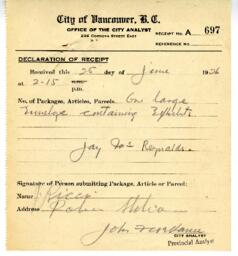 City of Vancouver, B.C.
OFFICE OF THE CITY ANALYST
236 CORDOVA STREET EAST
RECEIPT NO. A 697
REFERENCE NO.
DECLARATION OF RECEIPT
Received this 25 day of June 1936
at 2-15
p.m.
No. of Packages, Articles, Parcels. One large
Envelope containing Exhibits
Jay Reynolds
Signature of Person submitting Package, Article or Parcel:
Name Ricci
Address Police Station
CITY ANALYST
Provincial Analyst